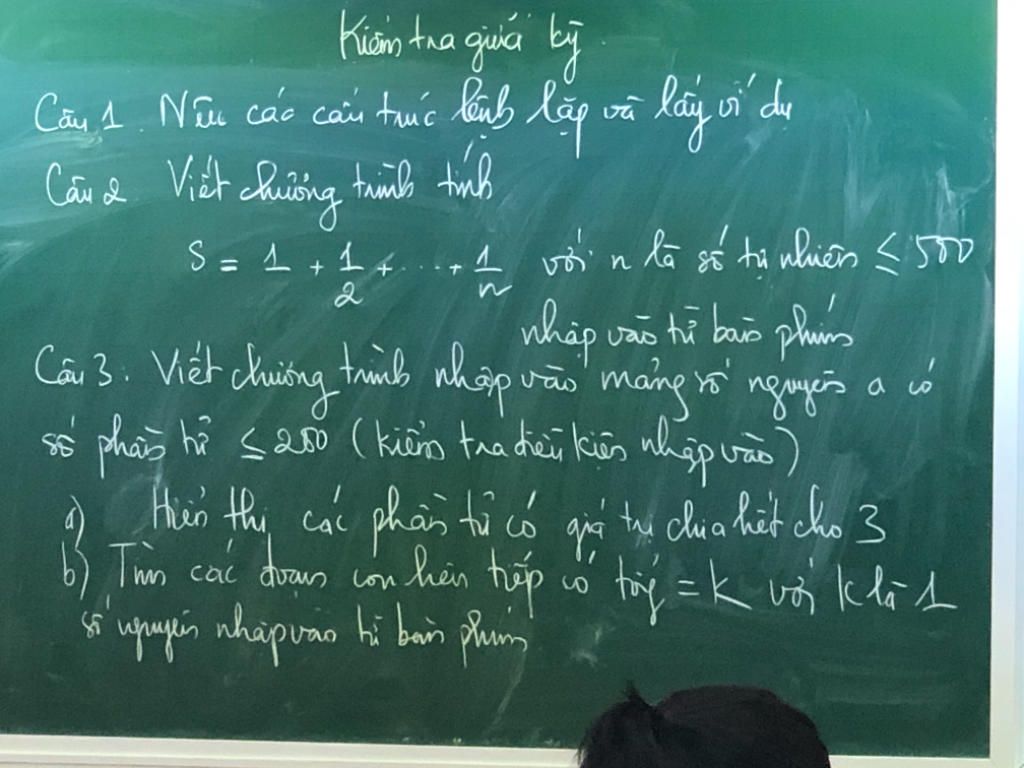 Kiểm tra giữa kỳ.
Câu 1. Nêu các cấu trúc lệnh lặp và lấy ví dụ
Câu 2. Viết chương trình tính
S = 1 + 1/2 + ... + 1/n với n là số tự nhiên ≤ 500
nhập vào từ bàn phím
Câu 3. Viết chương trình nhập vào mảng số nguyên a có
số phần tử ≤ 250 (kiểm tra điều kiện nhập vào)
a) Hiển thị các phần tử có giá trị chia hết cho 3
b) Tìm các đoạn con liên tiếp có tổng = K với K là 1
số nguyên nhập vào từ bàn phím